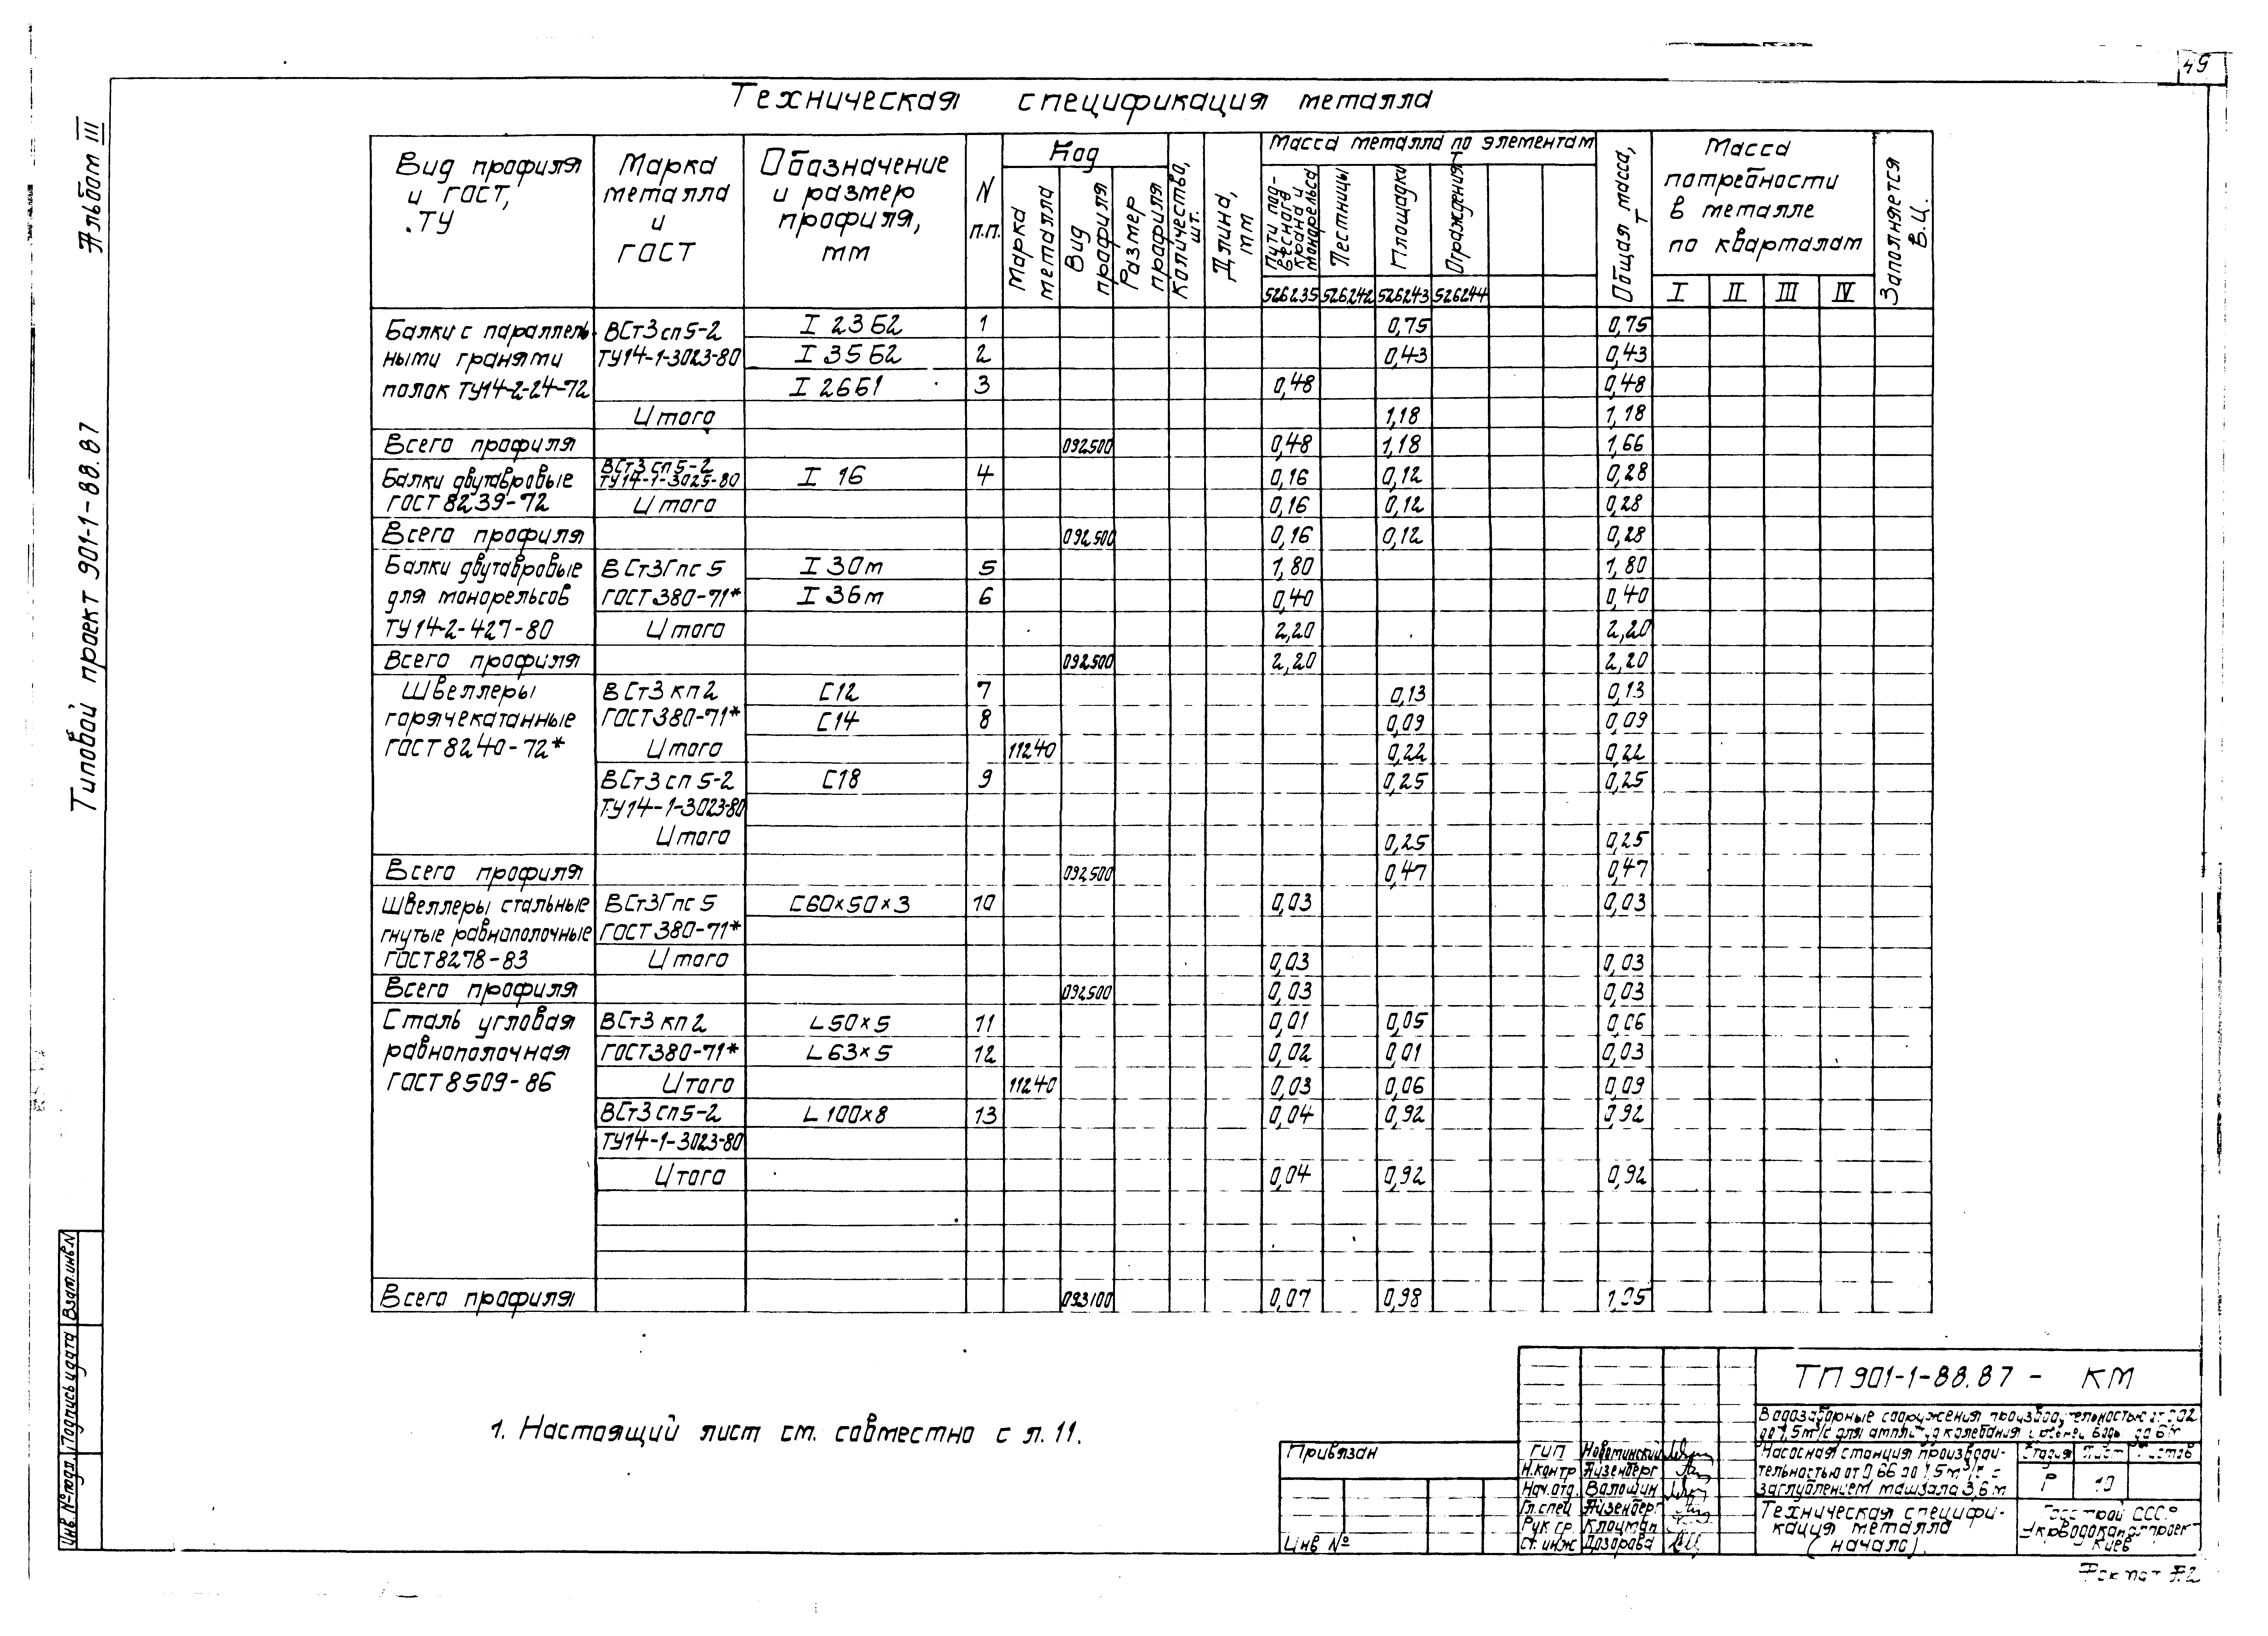 49
Альбом III
Типовой проект 901-1-88.87
Техническая спецификация металла
Вид профиля и ГОСТ, ТУ | Марка металла и ГОСТ | Обозначение и размер профиля, мм | N п.п. | Код | Количество, шт. | Длина, мм | Масса металла по элементам | Общая масса, т | Масса потребности в металле по кварталам | Заполняется В.Ц.
Марка металла | Вид профиля | Размер профиля | Пути подвесного крана и монорельса | Лестницы | Площадки | Ограждения
526235 526242 526243 526244 I II III IV
Балки с параллель- ВСт3сп5-2 I 23Б2 1 0,75 0,75
ными гранями ТУ14-1-3023-80 I 35Б2 2 0,43 0,43
полок ТУ14-2-24-72 I 26Б1 3 0,48 0,48
Итого 1,18 1,18
Всего профиля 092500 0,48 1,18 1,66
Балки двутавровые ВСт3сп5-2 ТУ14-1-3025-80 I 16 4 0,16 0,12 0,28
ГОСТ 8239-72 Итого 0,16 0,12 0,28
Всего профиля 092500 0,16 0,12 0,28
Балки двутавровые ВСт3Гпс5 I 30м 5 1,80 1,80
для монорельсов ГОСТ380-71* I 36м 6 0,40 0,40
ТУ14-2-427-80 Итого 2,20 2,20
Всего профиля 092500 2,20 2,20
Швеллеры ВСт3кп2 С12 7 0,13 0,13
горячекатанные ГОСТ380-71* С14 8 0,09 0,09
ГОСТ8240-72* Итого 11240 0,22 0,22
ВСт3сп5-2 С18 9 0,25 0,25
ТУ14-1-3023-80
Итого 0,25 0,25
Всего профиля 092500 0,47 0,47
Швеллеры стальные ВСт3Гпс5 С60×50×3 10 0,03 0,03
гнутые равнополочные ГОСТ380-71*
ГОСТ8278-83 Итого 0,03 0,03
Всего профиля 092500 0,03 0,03
Сталь угловая ВСт3кп2 L50×5 11 0,01 0,05 0,06
равнополочная ГОСТ380-71* L63×5 12 0,02 0,01 0,03
ГОСТ8509-86 Итого 11240 0,03 0,06 0,09
ВСт3сп5-2 L100×8 13 0,04 0,92 0,92
ТУ14-1-3023-80
Итого 0,04 0,92 0,92
Всего профиля 093100 0,07 0,98
1. Настоящий лист см. совместно с л. 11.
Взам.инв.N
Подпись и дата
Инв.№подл.
Привязан
Инв №
ТП 901-1-88.87 - КМ
Водозаборные сооружения производительностью
для колебания
ГИП Новотинский
Н.контр Айзенберг
Нач.отд. Волошин
Гл.спец Айзенберг
Рук гр. Клоцман
Ст. инж Дозорова
Насосная станция производи-
тельностью от 0,66 до 1,5м³/с с
заглублением машзала 3,6м
Стадия Лист Листов
Р 10
Техническая специфи-
кация металла
(начало)
Госстрой СССР
Укрводоканалпроект
Киев
Формат А2